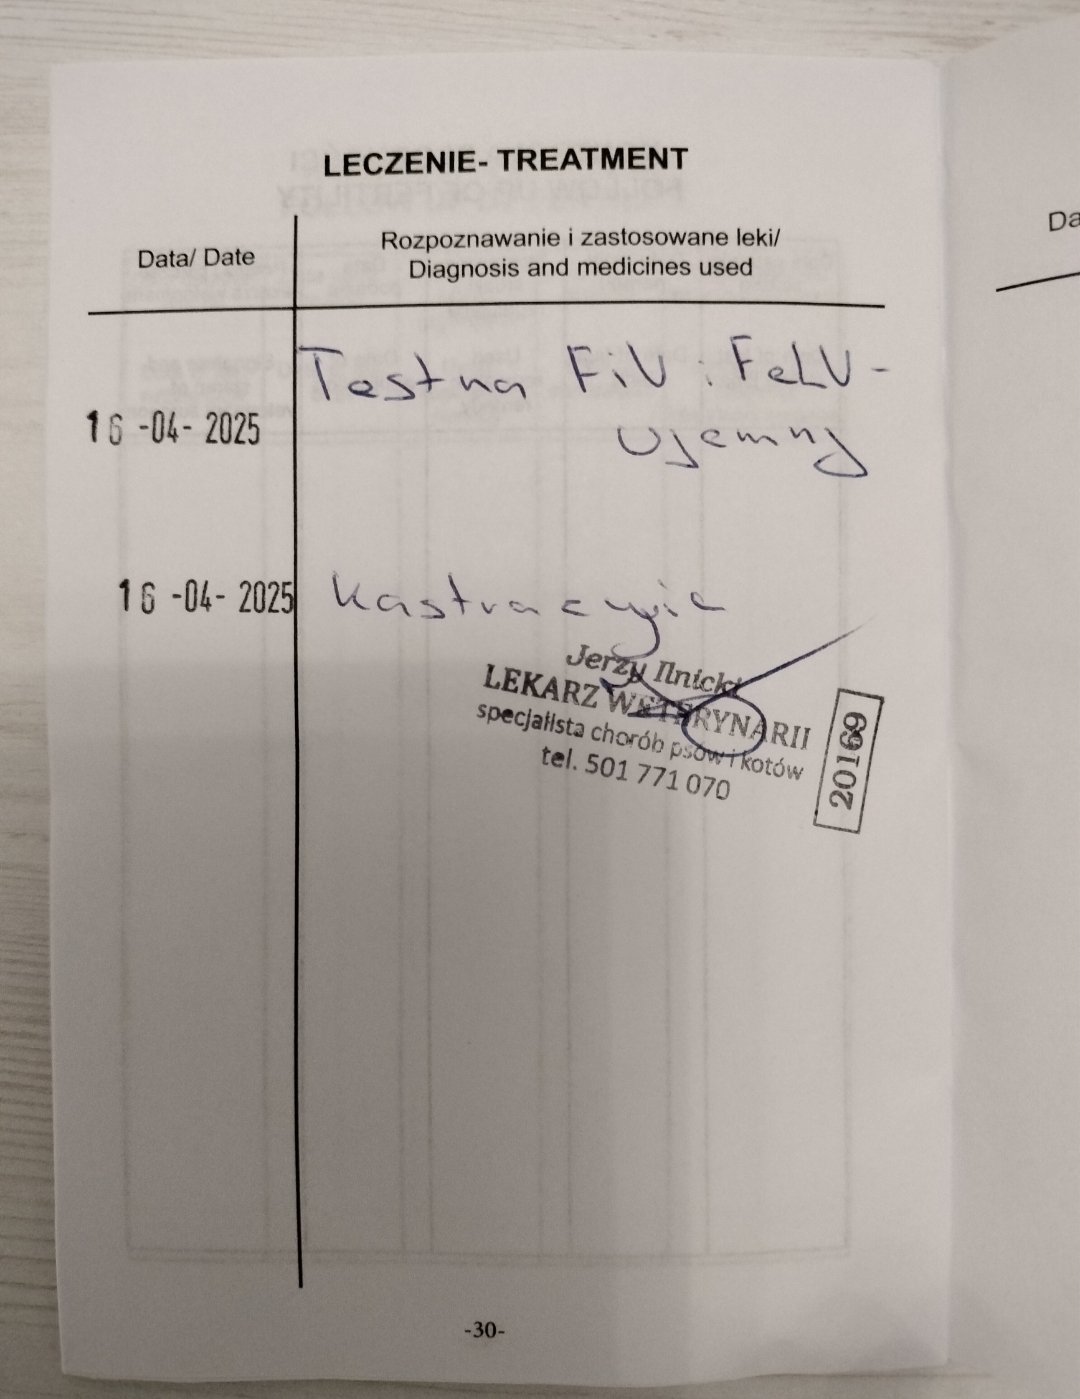 LECZENIE- TREATMENT
Data/ Date
Rozpoznawanie i zastosowane leki/
Diagnosis and medicines used
Test na FiV i FeLV -
ujemny
16 -04- 2025
16 -04- 2025
kastracyjie
Jerzy Ilnicki
LEKARZ WETERYNARII
specjalista chorób psów i kotów
tel. 501 771 070
20169
-30-
Da